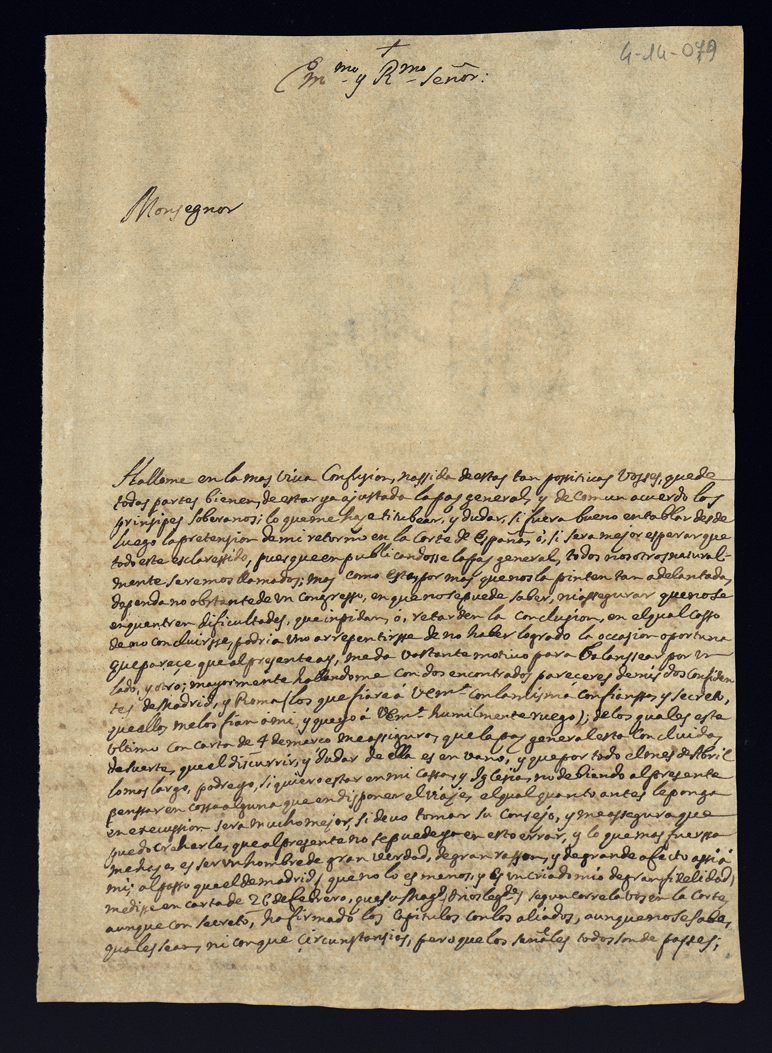 4-14-079
+
Em.mo y R.mo Señor:
Monsegnor
Hallome en la mas viva Confusion, nassida de estas tan possitivas Vosses, que de
todas partes bienen, de estar ya ajustada la pas general, y de comun acuerdo los
prinsipes soberanos; lo que me hase titubear, y dudar, si fuera bueno entablar desde
luego la pretension de mi retorno en la Corte de España, ò, si sera mejor esperar que
todo este esclaressido, pues que en publicandosse la pas general, todos nosotros natural-
mente seremos llamados; mas como estas por mas que nos la pinten tan adelantada,
dependa no obstante de un Congresso, en que no se puede saber, ni assegurar que no se
enquentren dificultades, que inpidan, ò, retarden la Conclusion, en el qual Casso
de no concluirsse, podria uno arrepentirsse de no haber logrado la occasion oportuna
que pareçe que al pressente ay, me da vastante motivo para balanssear por un
lado, y otro; mayormente hallandome con dos encontrados pareceres de mis dos Confiden-
tes de Madrid, y Roma (los que fiare à V Em.ª con la misma confiansa, y secreto,
que ellos me los fian à mi, y que yo à V Em.ª humilmente ruego); de los quales este
ultimo con carta de 4 de marco me assigura, que la pas general esta Concluida,
de suerte, que el discurrir, y dudar de ella es en vano, y que por todo el mes de Abril
lo mas largo, podre yo, si quiero estar en mi Cassa, y Iglesia, no debiendo al pressente
penssar en cossa alguna que en disponer el viaje, el qual quanto antes le ponga
en execussion sera mucho mejor, si devo tomar su Consejo, y me assegura que
puedo creherle, que al presente no se puede ya en esto errar, y lo que mas fuerssa
me hase es ser un hombre de gran verdad, de gran rasson, y de grande afecto assia
mi; al passo que el de madrid (que no lo es menos, y es un criado mio de gran fidelidad)
me disse en carta de 26 de febrero, que su Mag.d (Dios le g.de) segun corre la vos en la Corte,
aunque con secreto, ha firmado los Capitulos con los aliados, aunque no se sabe,
quales sean, ni con que Circunstansias, pero que los señales todos son de passes;